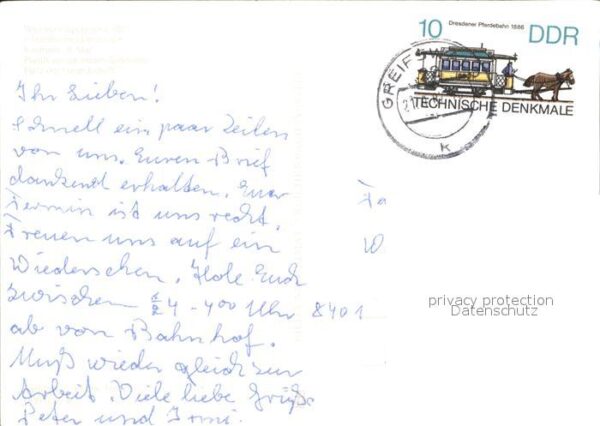 Dresdener Pferdebahn 1886
10 DDR
TECHNISCHE DENKMALE
GREIF
k
Ihr Lieben!
Schnell ein paar Zeilen
von uns. Euren Brief
dankend erhalten. Euer
Termin ist uns recht.
Freuen uns auf ein
Wiedersehen. Hole Euch
zwischen 1/2 4 - 400 Uhr
ab vom Bahnhof.
Muß wieder gleich zur
Arbeit. Viele liebe Grüße
Peter und Irmi.
Fa
W
8401
privacy protection
Datenschutz